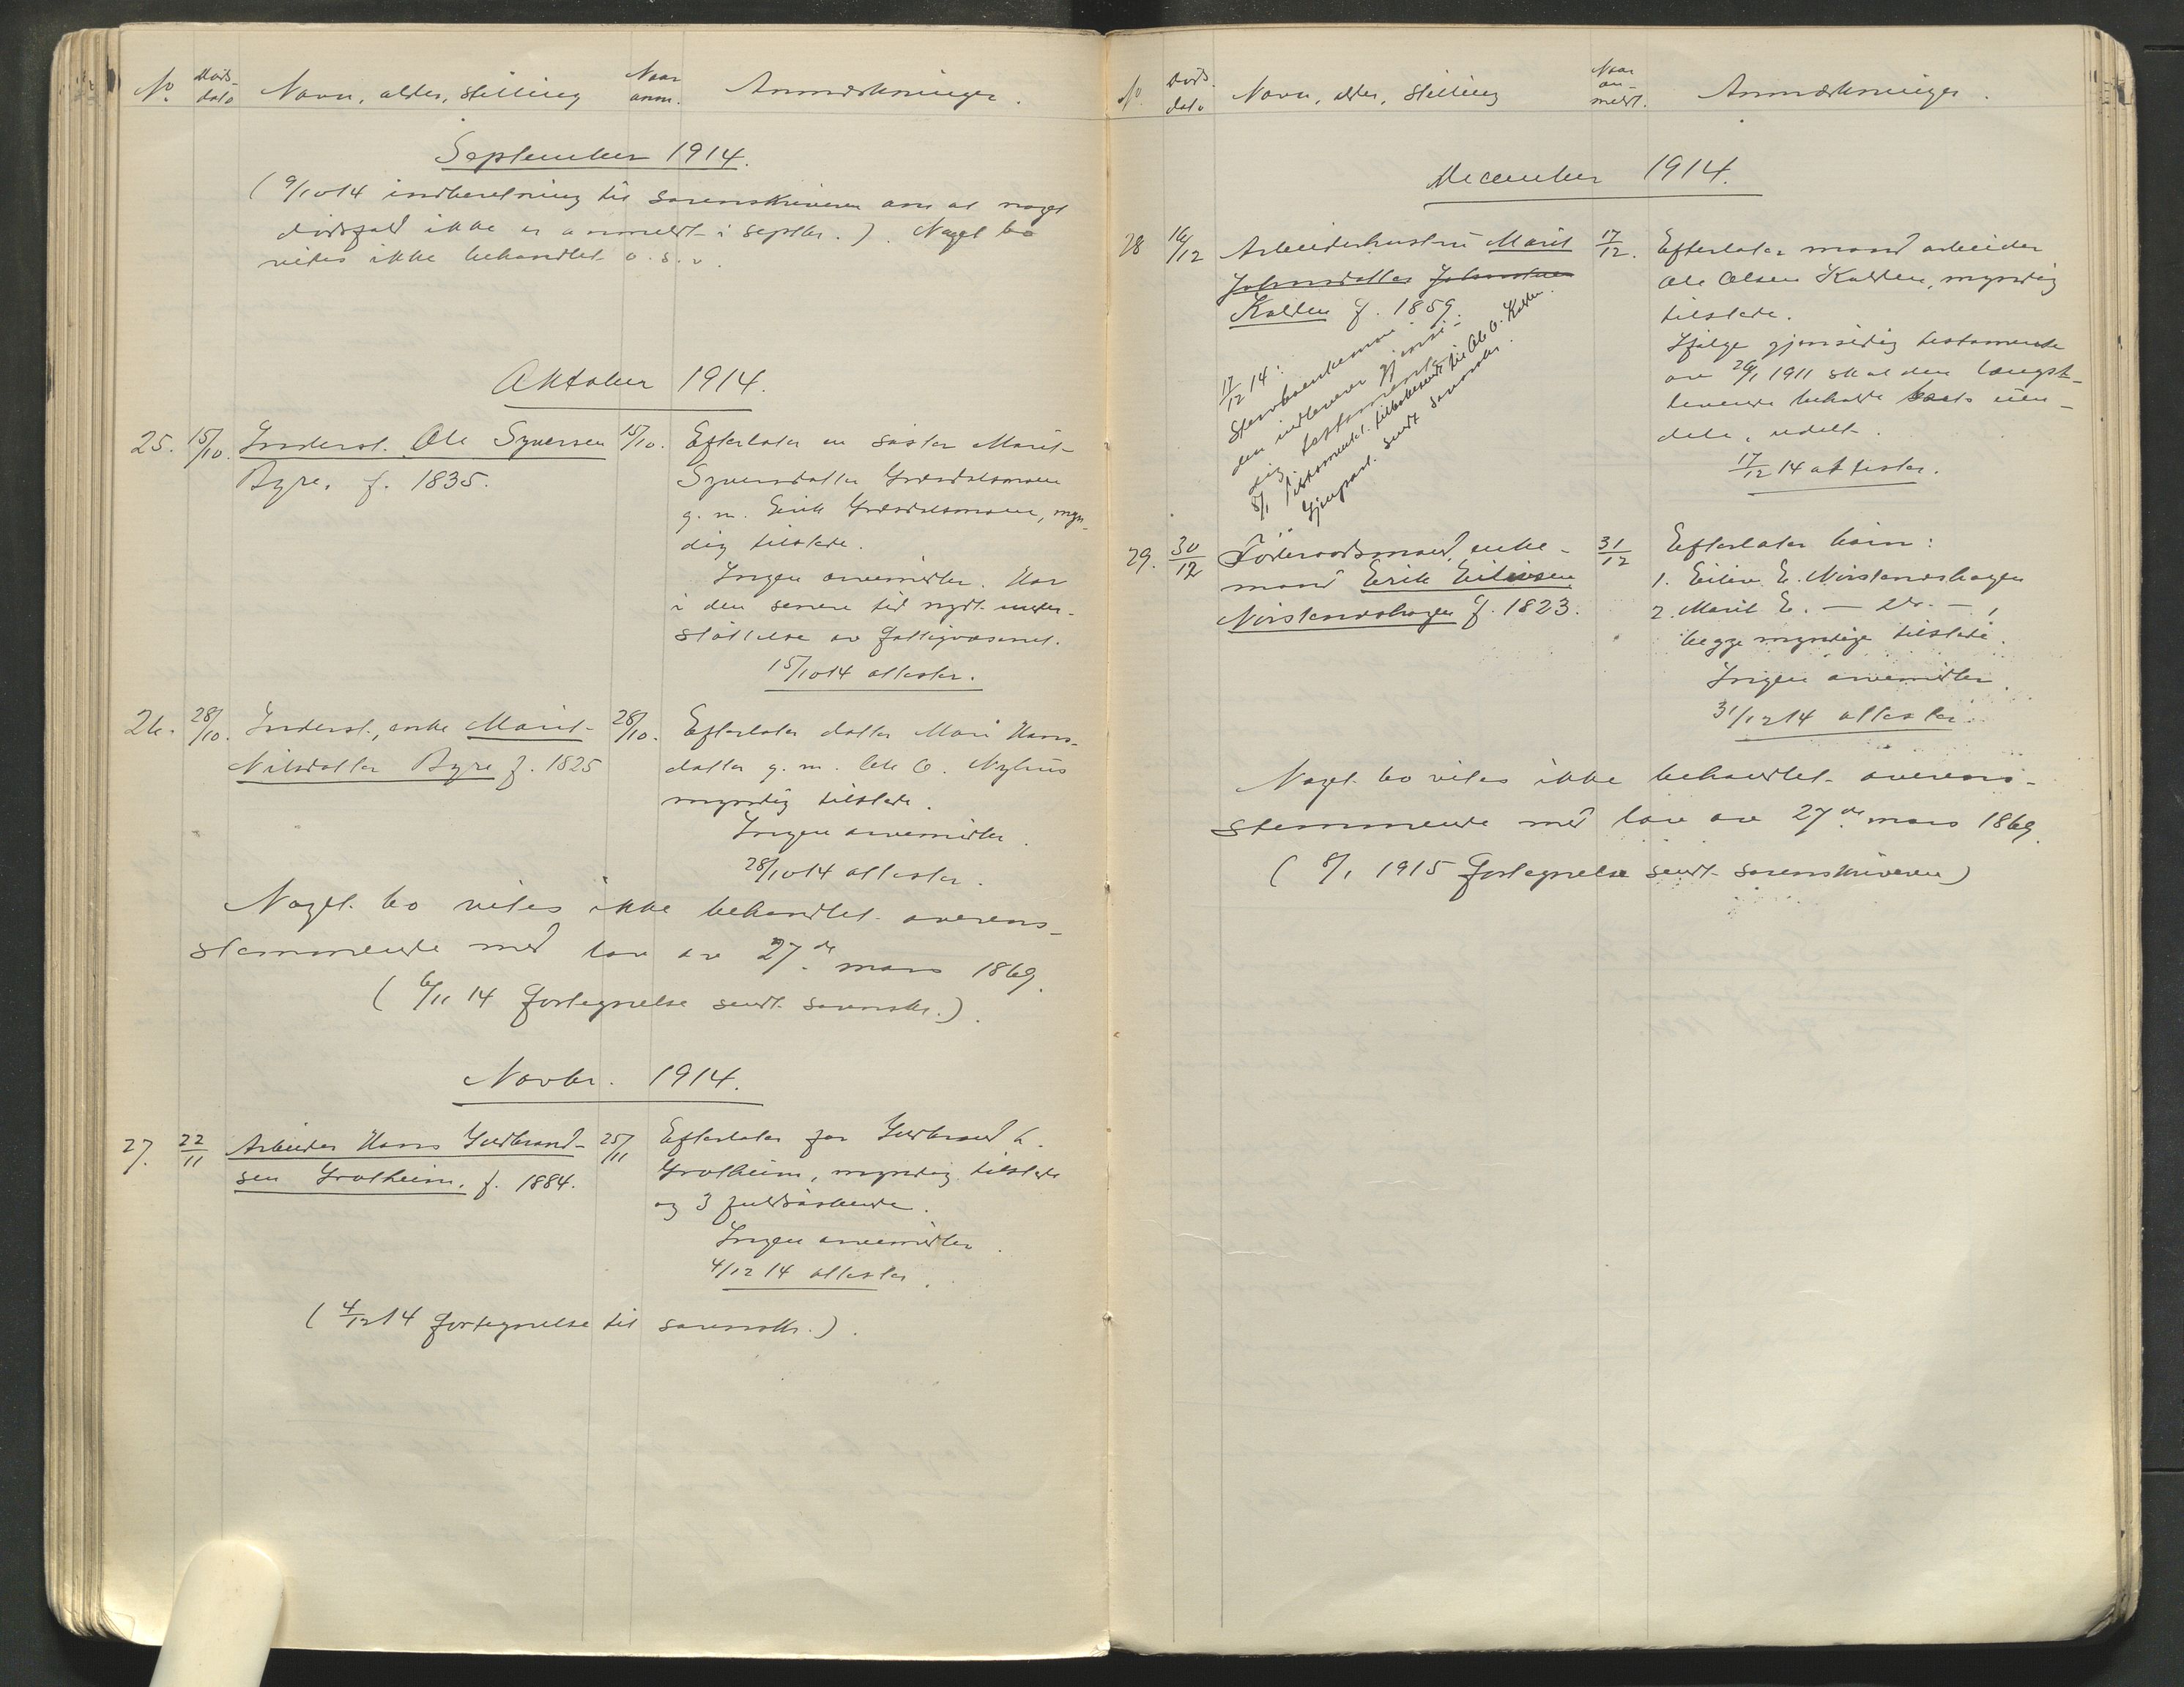 No. Döds-dato Navn, alder, stilling Naar anm. Anmærkninger.
September 1914.
(9/10 14 indberetning til sorenskriveren om at noget
dødsfald ikke er anmeldt i septbr.). Noget bo
vites ikke behandlet o.s.v.
Oktober 1914.
25. 15/10. Inderst. Ole Syversen 15/10. Efterlater en søster Marit
Byre. f. 1835. Syversdatter
g. m. Erik myn-
dig tilstede.
Ingen arvemidler. Har
i den senere tid nydt under-
støttelse av fattigvæsenet.
15/10 14 attester.
26. 28/10. Inderst, enke Marit 28/10. Efterlater datter Mari Hans-
Nilsdatter Byre f. 1825 datter g. m. Ole O. Nyhus
myndig tilstede.
Ingen arvemidler.
28/10 14 attester.
Noget bo vites ikke behandlet overens-
stemmende med lov av 27de mars 1869.
(6/11 14 fortegnelse sendt sorenskr.).
Novbr. 1914.
27. 22/11 Arbeider Hans Gudbrand- 25/11 Efterlater far Gudbrand
sen Grotheim. f. 1884. Grotheim, myndig tilstede
og 3 fuldsøskende.
Ingen arvemidler.
4/12 14 attester.
(4/12 14 fortegnelse til sorenskr.).
No. Döds-dato Navn, alder, stilling Naar an-meldt. Anmærkninger.
December 1914.
28 16/12 Arbeiderhustru Marit 17/12. Efterlater mand arbeider
Johnsdatter Ole Olsen Kolden, myndig
Kolden f. 1859. tilstede.
Ifølge gjensidig testamente
av 26/1 1911 skal den længst-
levende beholde boets eien-
dele, udelt.
17/12 14 attester.
17/12 14:
Stervboenkeman-
den indleverer gjensi-
dig testamente.
8/1 Testamentet tilbakesendt til Ole O. Kolden.
Gjenpart sendt sorenskr.
29. 30/12 Föderaadsmand, enke- 31/12 Efterlater barn:
mand Erik Eilivsen 1. Eiliv E. Nörstenrshagen
f. 1823. 2. Marit E. — Do. —,
begge myndige tilstede.
Ingen arvemidler.
31/12 14 attester.
Noget bo vites ikke behandlet overens-
stemmende med lov av 27de mars 1869.
(8/1 1915 fortegnelse sendt sorenskriveren)